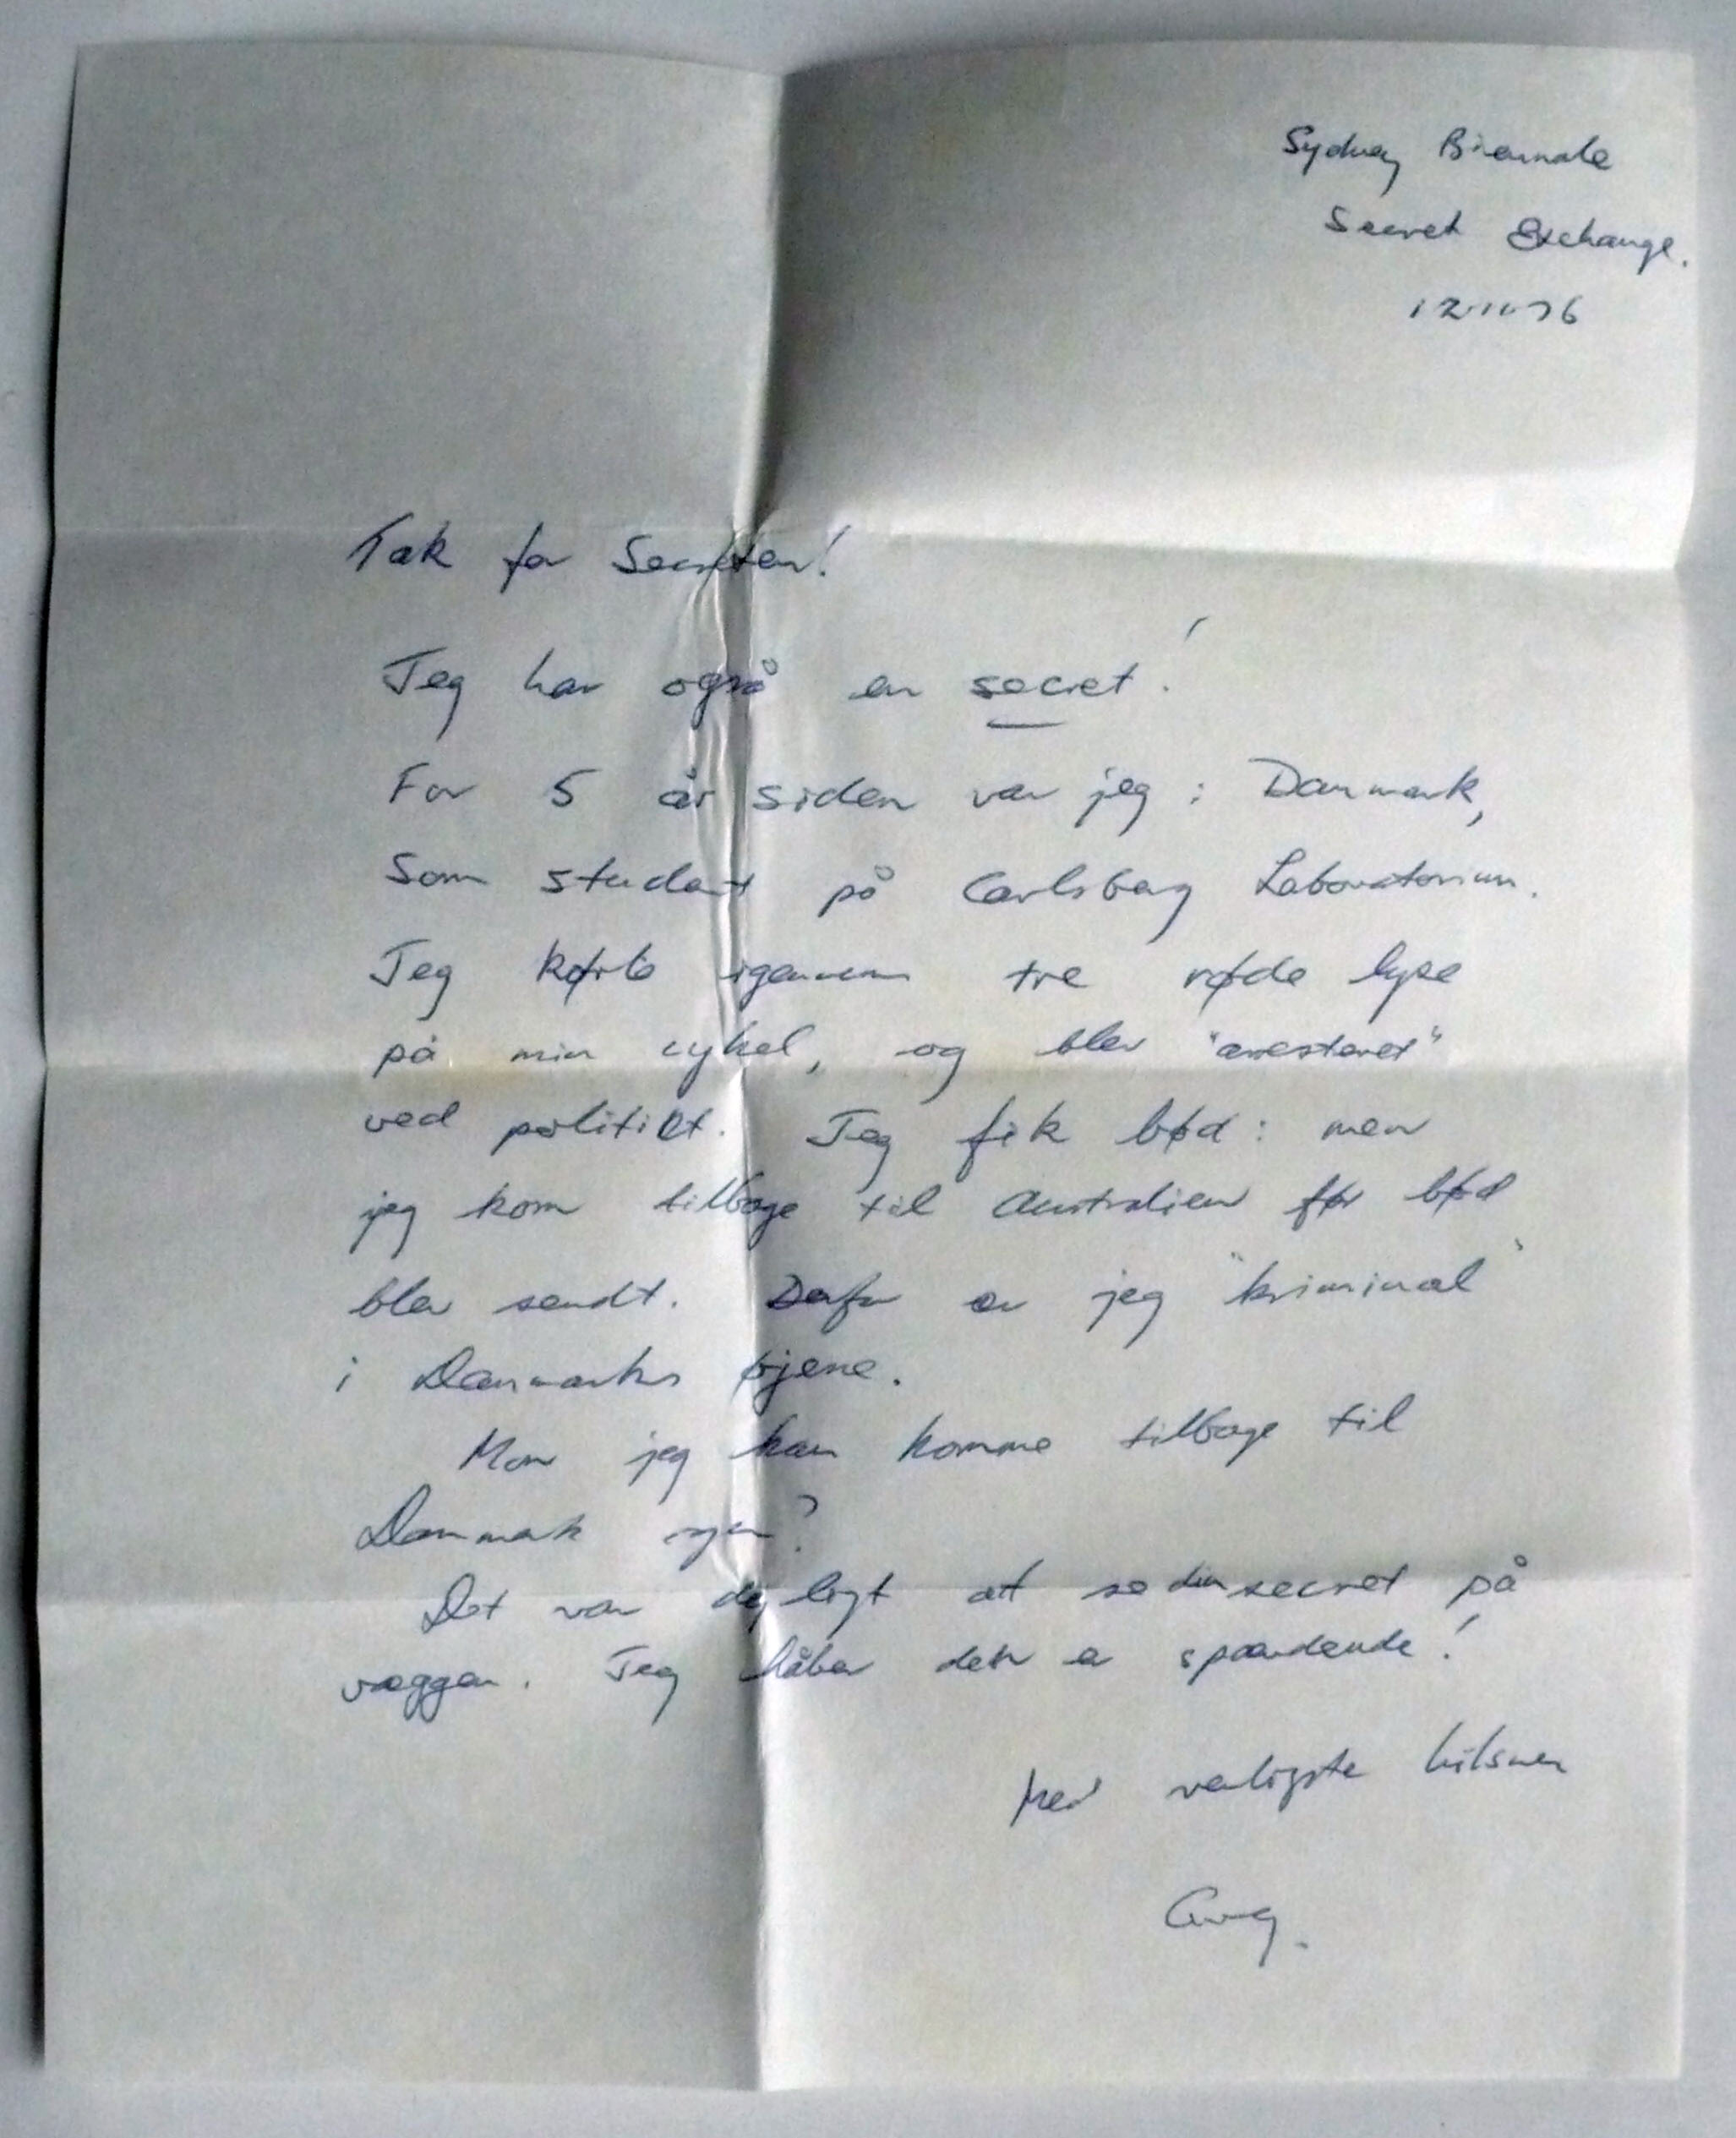 Sydney Biennale
Secret Exchange.
12.11.76
Tak for Secreten!
Jeg har også en secret!
For 5 år siden var jeg i Danmark,
Som student på Carlsberg Laboratorium.
Jeg kørte igennem tre røde lyse
på min cykel, og blev "arresteret"
ved politiet. Jeg fik bød: men
jeg kom tilbage til Australien før bød
blev sendt. Derfor er jeg "kriminal"
i Danmarks øjene.
Mon jeg kan komme tilbage til
Danmark igen?
Det var dejligt at se din secret på
væggen. Jeg håber den er spændende!
Med venligste hilsner